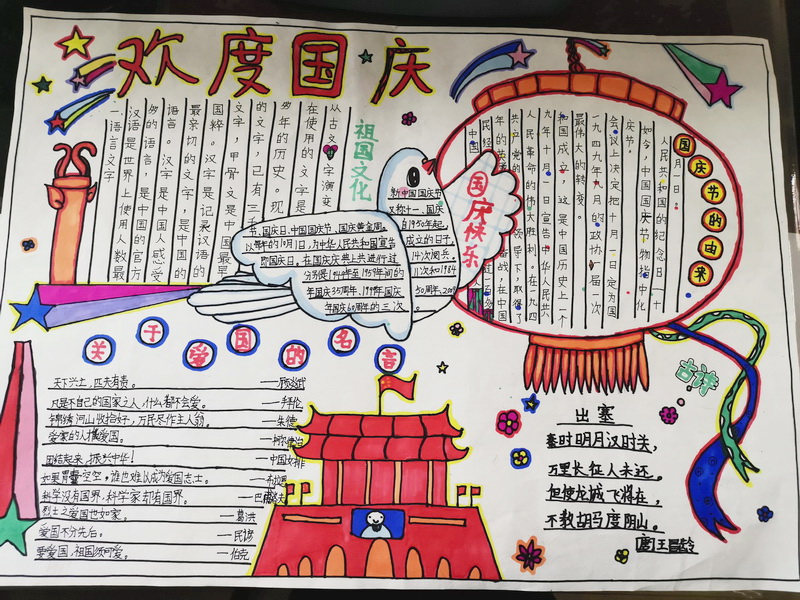 欢度国庆
祖国文化
一、语言文字
汉语是世界上使用人数最
多的语言，是中国的官方
语言。汉字是中国人感受
最亲切的文字，是中国的
国粹。汉字是记录汉语的
文字，甲骨文是中国最早
的文字，已有三
多年的历史。现
在使用的文字是
从古文字演变
新中国国庆节
又称十一、国庆
节、国庆日、中国国庆节、国庆黄金周。
自1950年起，
以每年的10月1日，为中华人民共和国宣告
成立的日子，
即国庆日，在国庆庆典上共进行过
14次阅兵。
分别是1949年至1959年间的
11次和1984
年国庆35周年、1999年国庆
50周年、2009
年国庆60周年的三次
国庆快乐
国庆节的由来
中国
民经
年的英
在中国
共产党的领导下，取得了
人民革命的伟大胜利。在一九四
九年十月一日宣告中华人民共
和国成立，这是中国历史上一个
最伟大的转变。
一九四九年九月的政协一届一次
会议上决定把十月一日定为国
庆节。
如今，中国国庆节特指中华
人民共和国的纪念日一十
月一日。
关于爱国的名言
天下兴亡，匹夫有责。——顾炎武
凡是不自己的国家之人，什么都不会爱。——拜伦
锦绣河山收拾好，万民尽作主人翁。——朱德
爱家的人横爱国。
团结起来，振兴中华！——中国女排
如果胃囊空空，谁也难以成为爱国志士。
科学没有国界，科学家却有国界。
烈士之爱国也如家。——葛洪
爱国不分先后。——民谚
要爱国，祖国须可爱。——伯克
古诗
出塞
秦时明月汉时关，
万里长征人未还。
但使龙城飞将在，
不教胡马度阴山。
唐王昌龄